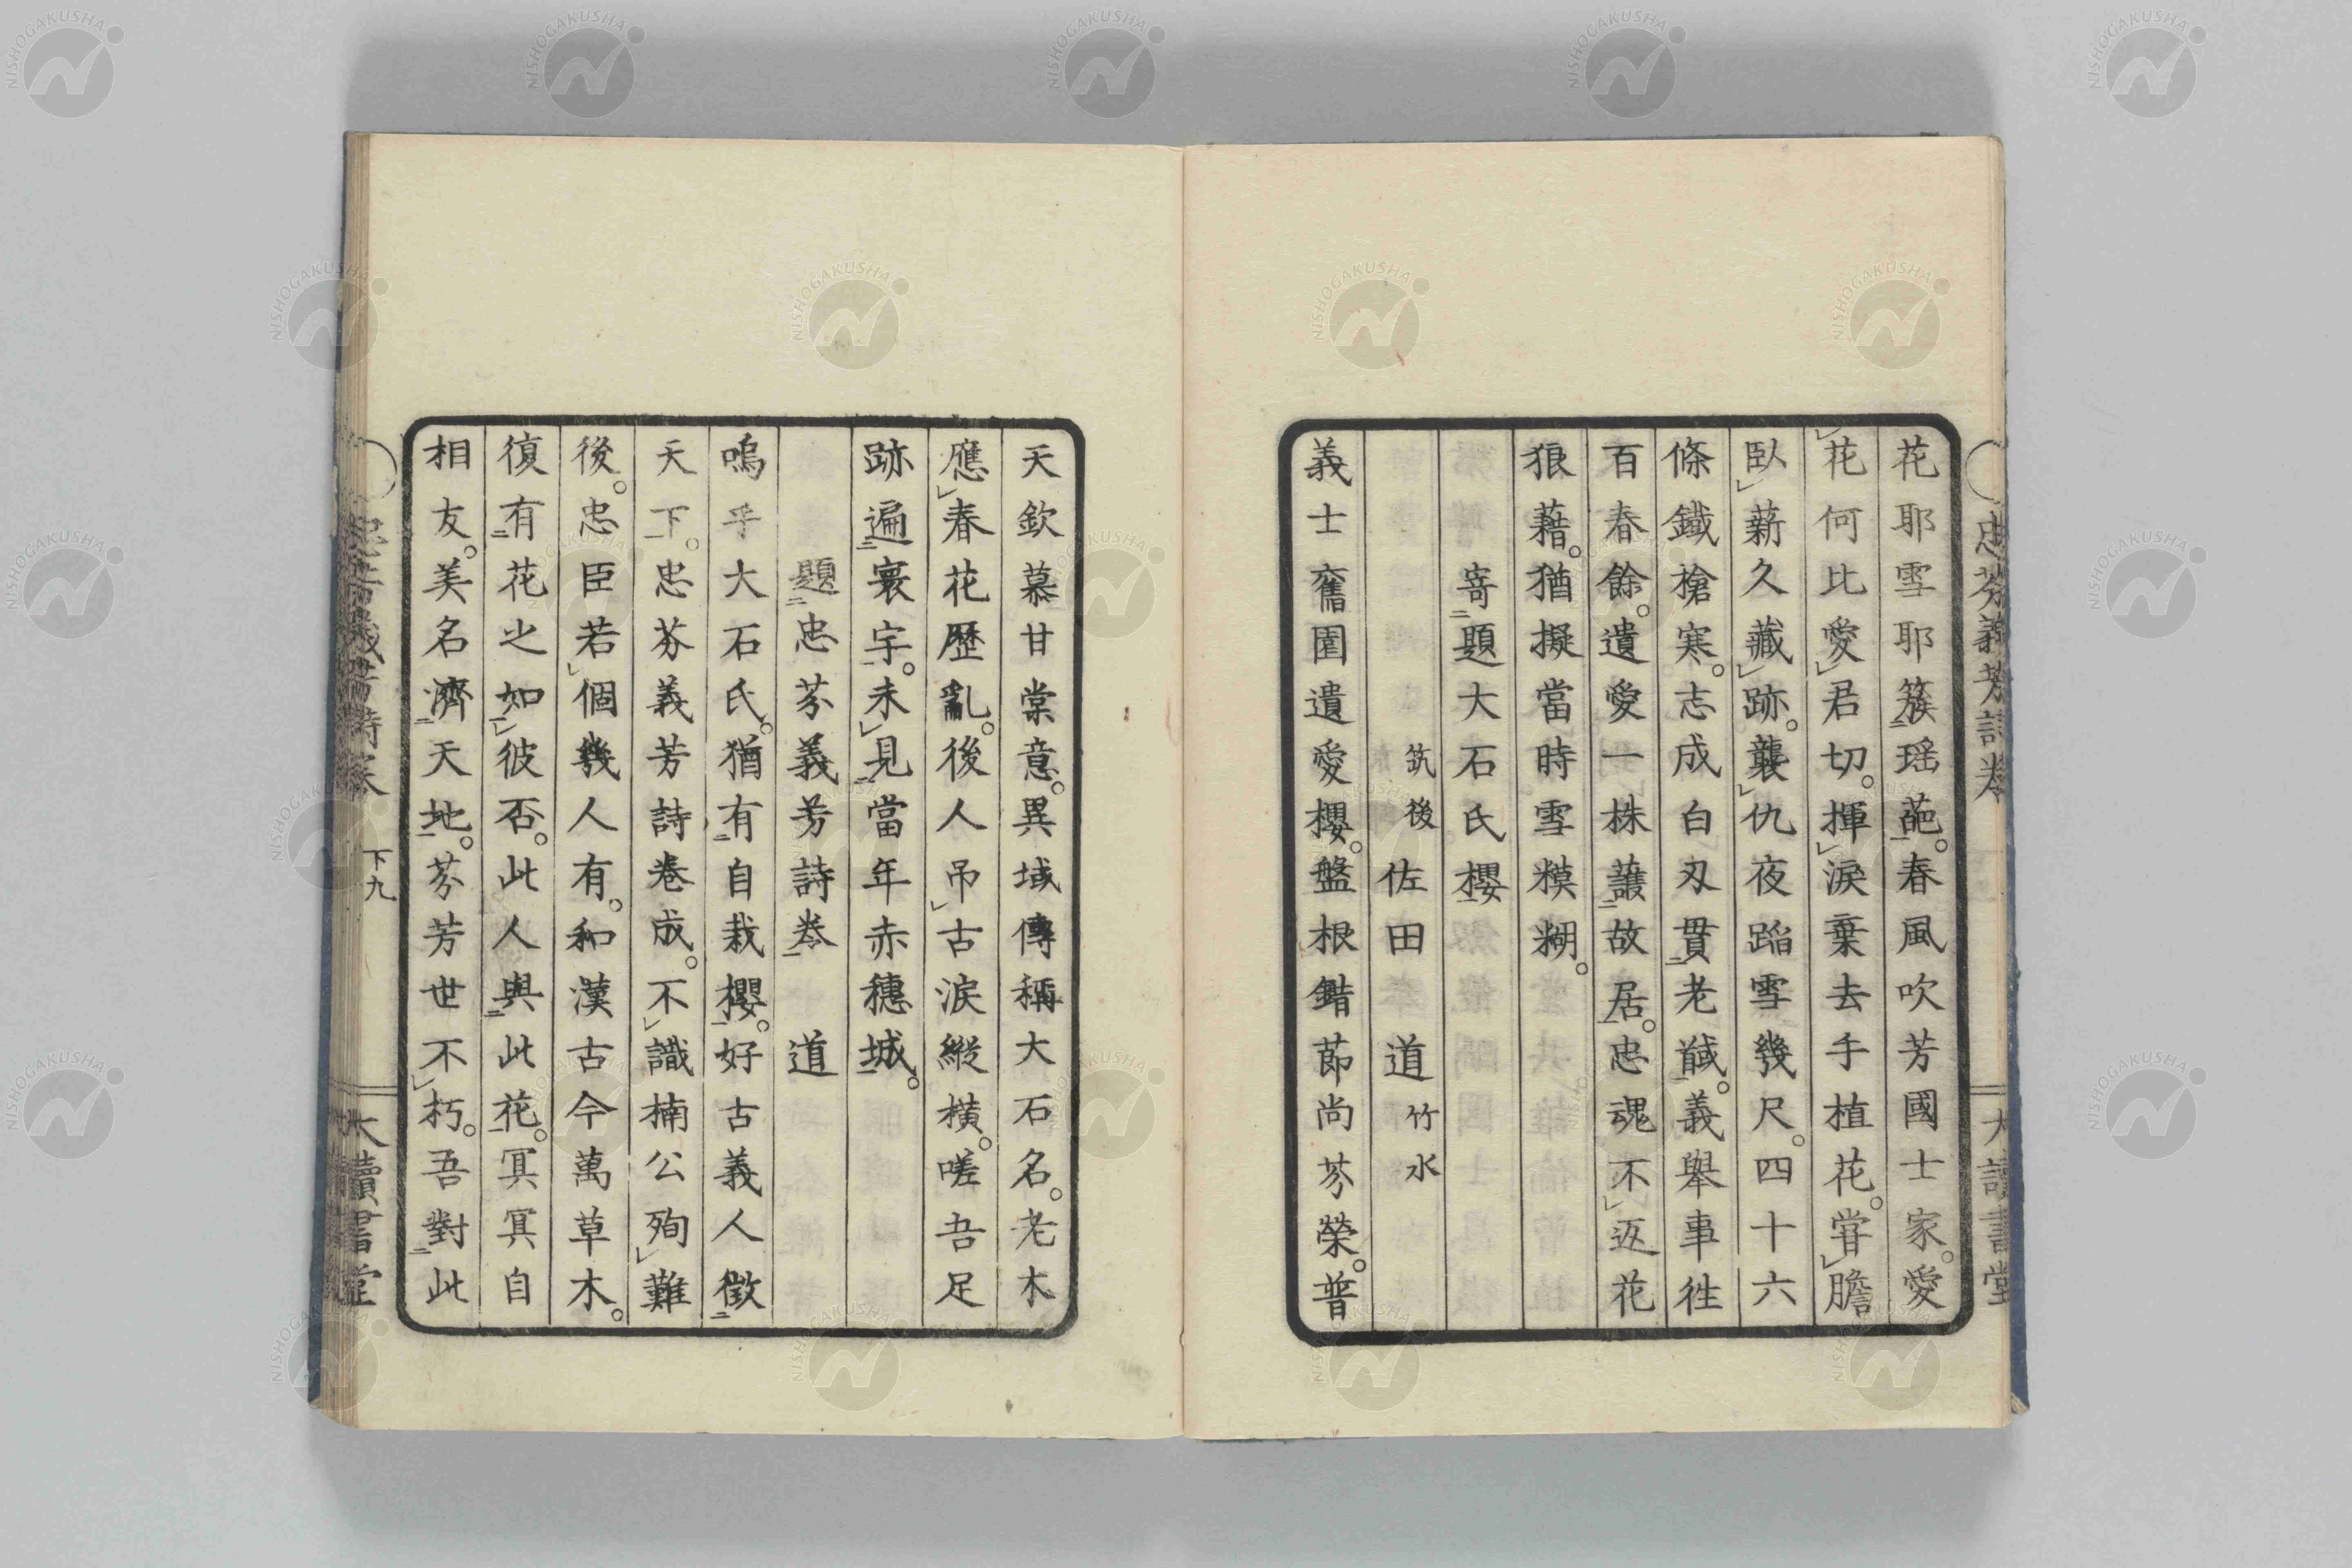 花耶雪耶簇瑶葩。春風吹芳國士家。愛
花何比愛君切。揮淚棄去手植花。甞膽
臥薪久藏跡。襲仇夜蹈雪幾尺。四十六
條鐵槍寒。志成白刃貫老馘。義舉事徃
百春餘。遺愛一株護故居。忠魂不返花
狼藉。猶擬當時雪糢糊。
寄題大石氏櫻
筑後 佐田 道 竹水
義士舊園遺愛櫻。盤根錯莭尚芬榮。普
忠芬義芳詩卷
大讀書堂
天欽慕甘棠意。異域傳稱大石名。老木
應春花歷亂。後人吊古淚縱橫。嗟吾足
跡遍寰宇。未見當年赤穗城。
題忠芬義芳詩卷 道
嗚乎大石氏。猶有自栽櫻。好古義人徵
天下。忠芬義芳詩卷成。不識楠公殉難
後。忠臣若個幾人有。和漢古今萬草木。
復有花之如彼否。此人與此花。冥冥自
相友。美名濟天地。芬芳世不朽。吾對此
下九
大讀書堂
NISHOGAKUSHA